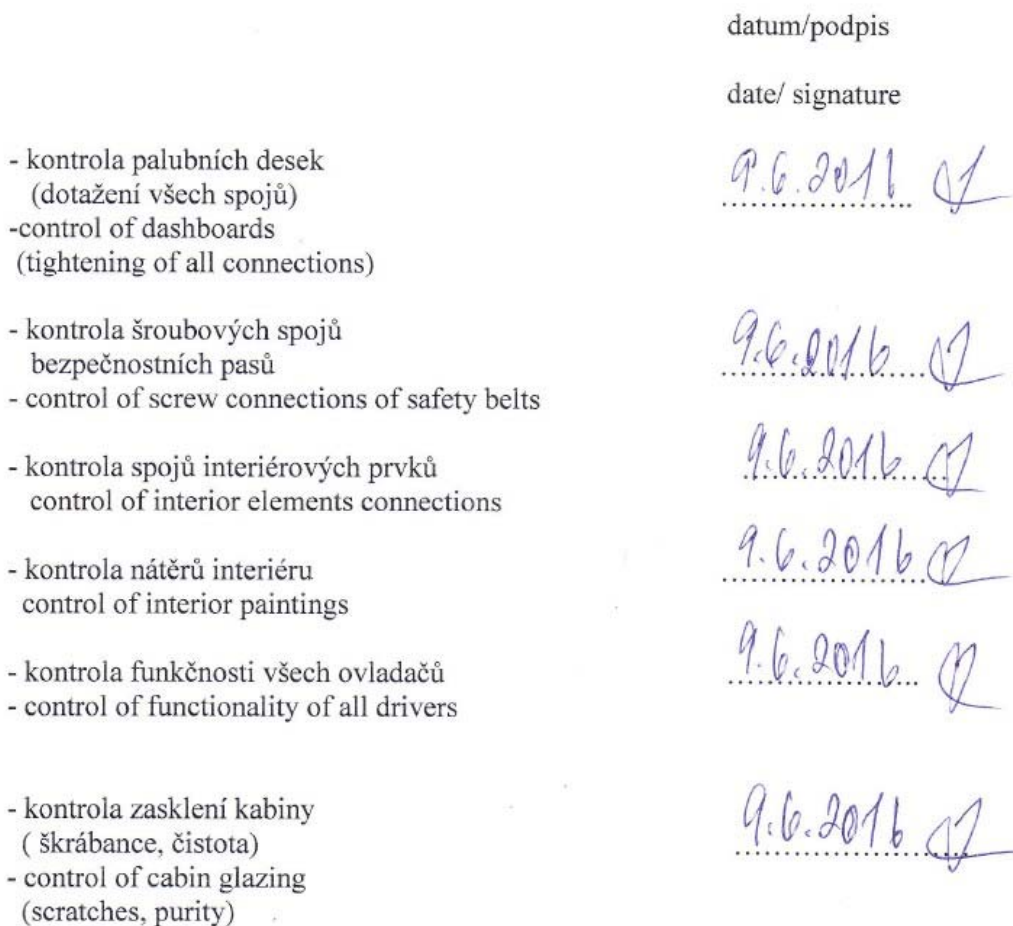 datum/podpis
date/ signature
- kontrola palubních desek
(dotažení všech spojů)
-control of dashboards
(tightening of all connections)
9.6.2016
- kontrola šroubových spojů
bezpečnostních pasů
- control of screw connections of safety belts
9.6.2016
- kontrola spojů interiérových prvků
control of interior elements connections
9.6.2016
- kontrola nátěrů interiéru
control of interior paintings
9.6.2016
- kontrola funkčnosti všech ovladačů
- control of functionality of all drivers
9.6.2016
- kontrola zasklení kabiny
( škrábance, čistota)
- control of cabin glazing
(scratches, purity)
9.6.2016